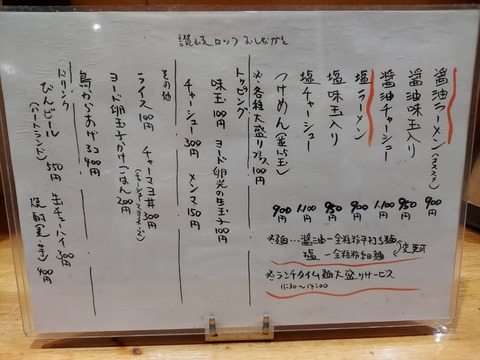 讃岐ロック おしながき
醤油ラーメン(オススメ) 900
醤油味玉入り 950
醤油チャーシュー 1100
塩ラーメン 900
塩味玉入り 950
塩チャーシュー 1100
つけめん 900
※麺…醤油-全粒粉平打ち麺
塩-全粒粉細麺
変更可
※ランチタイム麺大盛りサービス
11:30〜14:00
トッピング
※各種大盛りプラス100円
味玉100円 ヨード卵光の生玉子100円
チャーシュー300円 メンマ150円
その他
ライス100円 チャーマヨ丼300円
ヨード卵玉子かけごはん200円
鳥からあげ3コ400円
ドリンク
びんビール 550円 缶チューハイ300円
(ハートランド) 焼酎(麦・芋)400円